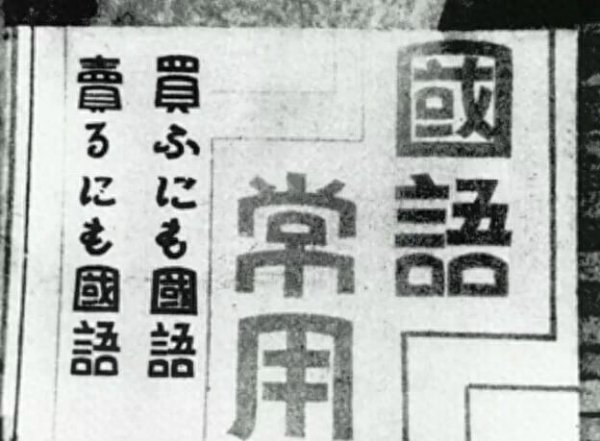 國語
常用
買ふにも國語
賣るにも國語